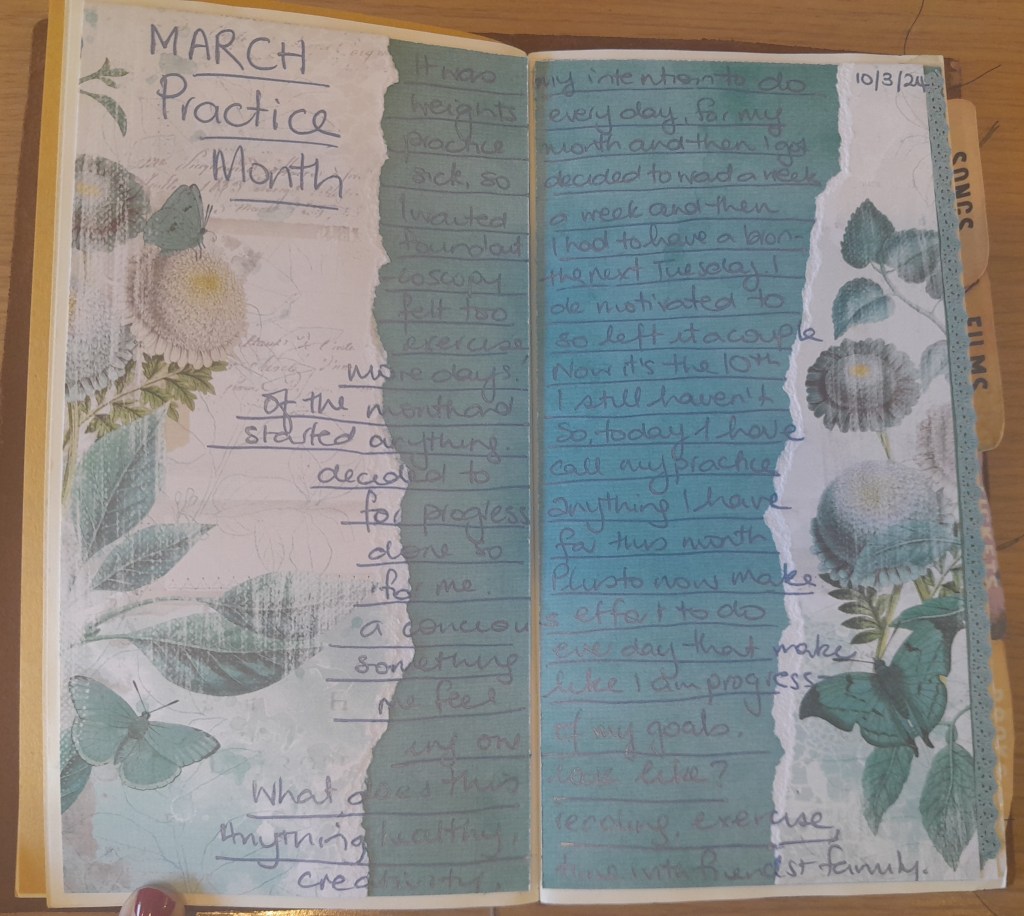 MARCH
Practice
Month
10/3/24
It was my intention to do
weights every day, for my
practice month and then I got
sick, so decided to wait a week
I waited a week and then
found out I had to have a bron-
coscopy the next Tuesday. I
felt too de motivated to
exercise, so left it a couple
more days. Now it's the 10th
of the month and I still haven't
started anything. So, today I have
decided to call my practice
for progress anything I have
done so far this month
for me. Plus to now make
a concious effort to do
something every day that make
me feel like I am progress-
ing one of my goals.
What does this look like?
Anything healthy, reading, exercise,
creativity, time into friends + family.
SONGS
FILMS